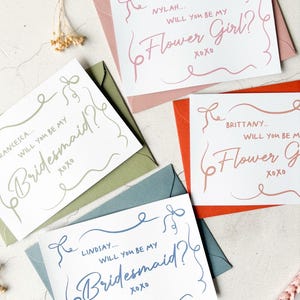 NYLAH...
WILL YOU BE MY
Flower Girl?
xoxo
BRITTANY...
WILL YOU BE MY
Flower G
xoxo
WILL YOU BE MY
Bridesmaid?
xoxo
LINDSAY...
WILL YOU BE MY
Bridesmaid?
xoxo